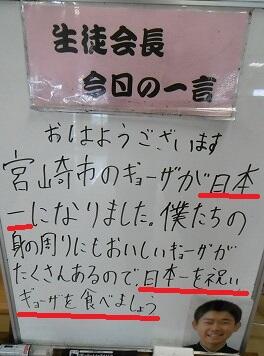 生徒会長
今日の一言
おはようございます
宮崎市のギョーザが日本
一になりました。僕たちの
身の周りにもおいしいギョーザが
たくさんあるので、日本一を祝い
ギョーザを食べましょう